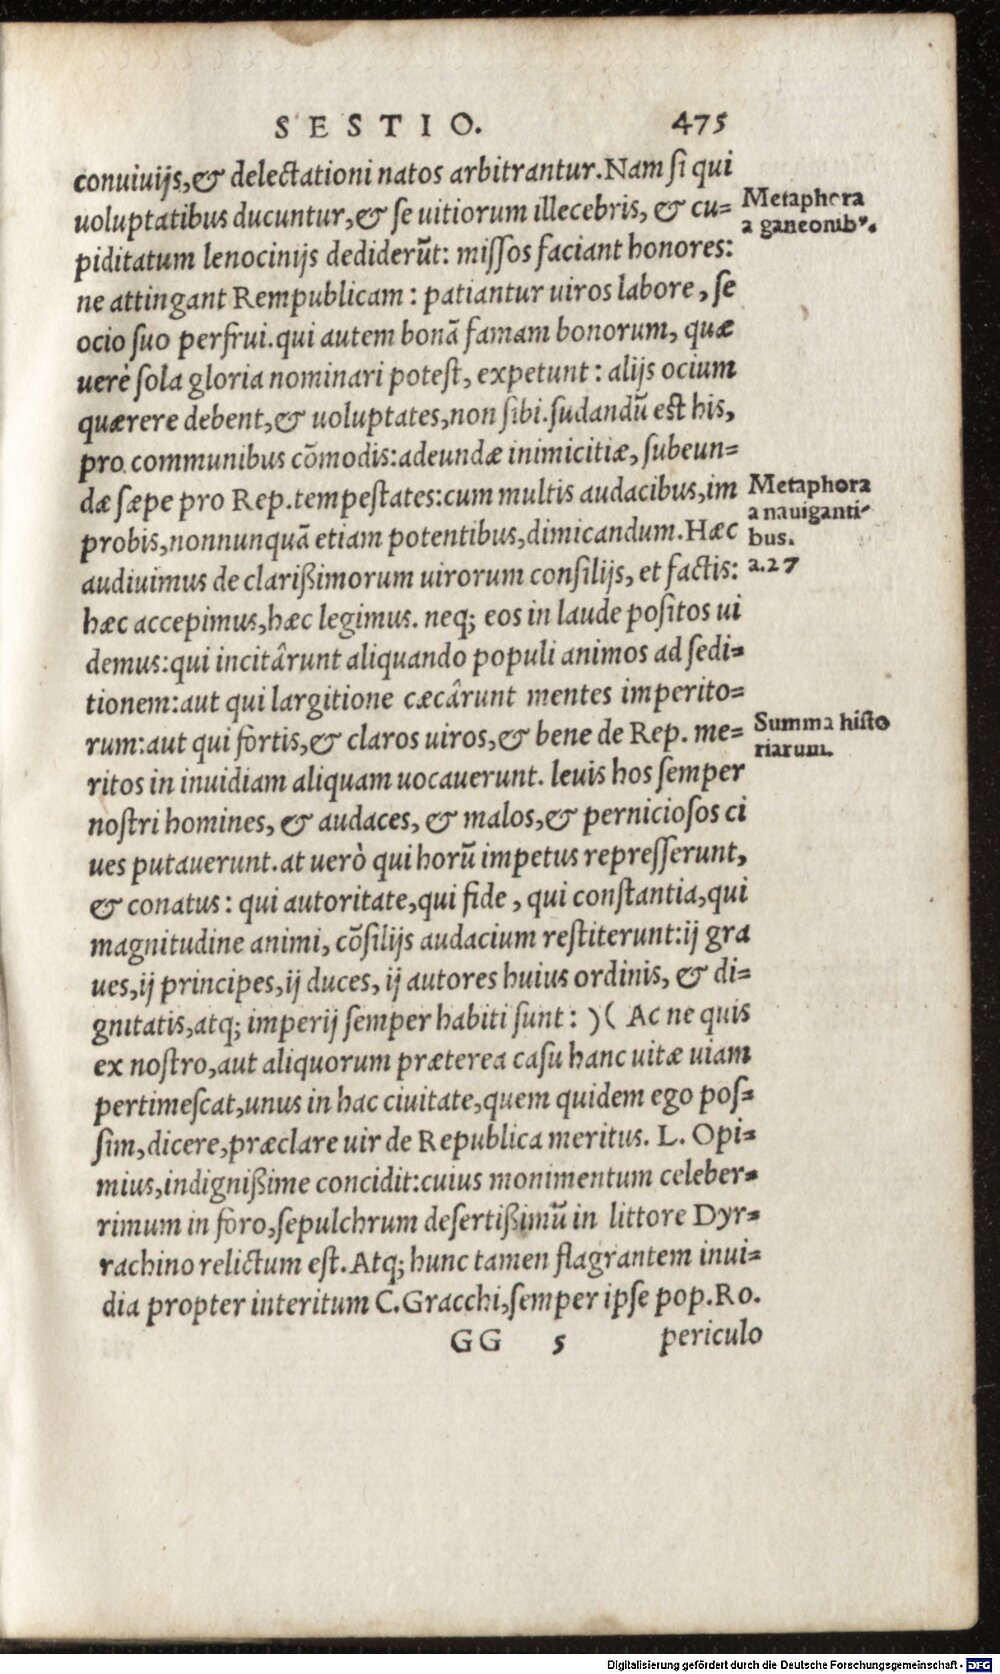 SESTIO. 475
conuiuijs,& delectationi natos arbitrantur.Nam si qui
uoluptatibus ducuntur,& se uitiorum illecebris, & cu=
Metaphora
a ganeonibꝰ.
piditatum lenocinijs dediderūt: missos faciant honores:
ne attingant Rempublicam: patiantur uiros labore, se
ocio suo perfrui.qui autem bonā famam bonorum, quæ
uerè sola gloria nominari potest, expetunt: alijs ocium
quærere debent,& uoluptates,non sibi.sudandū est his,
pro communibus cōmodis:adeundæ inimicitiæ, subeun=
dæ sæpe pro Rep.tempestates:cum multis audacibus,im
Metaphora
a nauiganti-
bus.
probis,nonnunquā etiam potentibus,dimicandum.Hæc
audiuimus de clarißimorum uirorum consilijs, et factis:
2.27
hæc accepimus,hæc legimus. neq; eos in laude positos ui
demus:qui incitârunt aliquando populi animos ad sedi=
tionem:aut qui largitione cæcârunt mentes imperito=
rum:aut qui fortis,& claros uiros,& bene de Rep. me=
Summa histo
riarum.
ritos in inuidiam aliquam uocauerunt. leuis hos semper
nostri homines, & audaces, & malos,& perniciosos ci
ues putauerunt.at uerò qui horū impetus represserunt,
& conatus: qui autoritate,qui fide, qui constantia,qui
magnitudine animi, cōsilijs audacium restiterunt:ij gra
ues,ij principes,ij duces, ij autores huius ordinis, & di=
gnitatis,atq; imperij semper habiti sunt: )( Ac ne quis
ex nostro,aut aliquorum præterea casu hanc uitæ uiam
pertimescat,unus in hac ciuitate,quem quidem ego pos=
sim,dicere,præclare uir de Republica meritus. L. Opi=
mius,indignißime concidit:cuius monimentum celeber=
rimum in foro,sepulchrum desertißimū in littore Dyr=
rachino relictum est.Atq; hunc tamen flagrantem inui=
dia propter interitum C.Gracchi,semper ipse pop.Ro.
GG 5 periculo
Digitalisierung gefördert durch die Deutsche Forschungsgemeinschaft - DFG